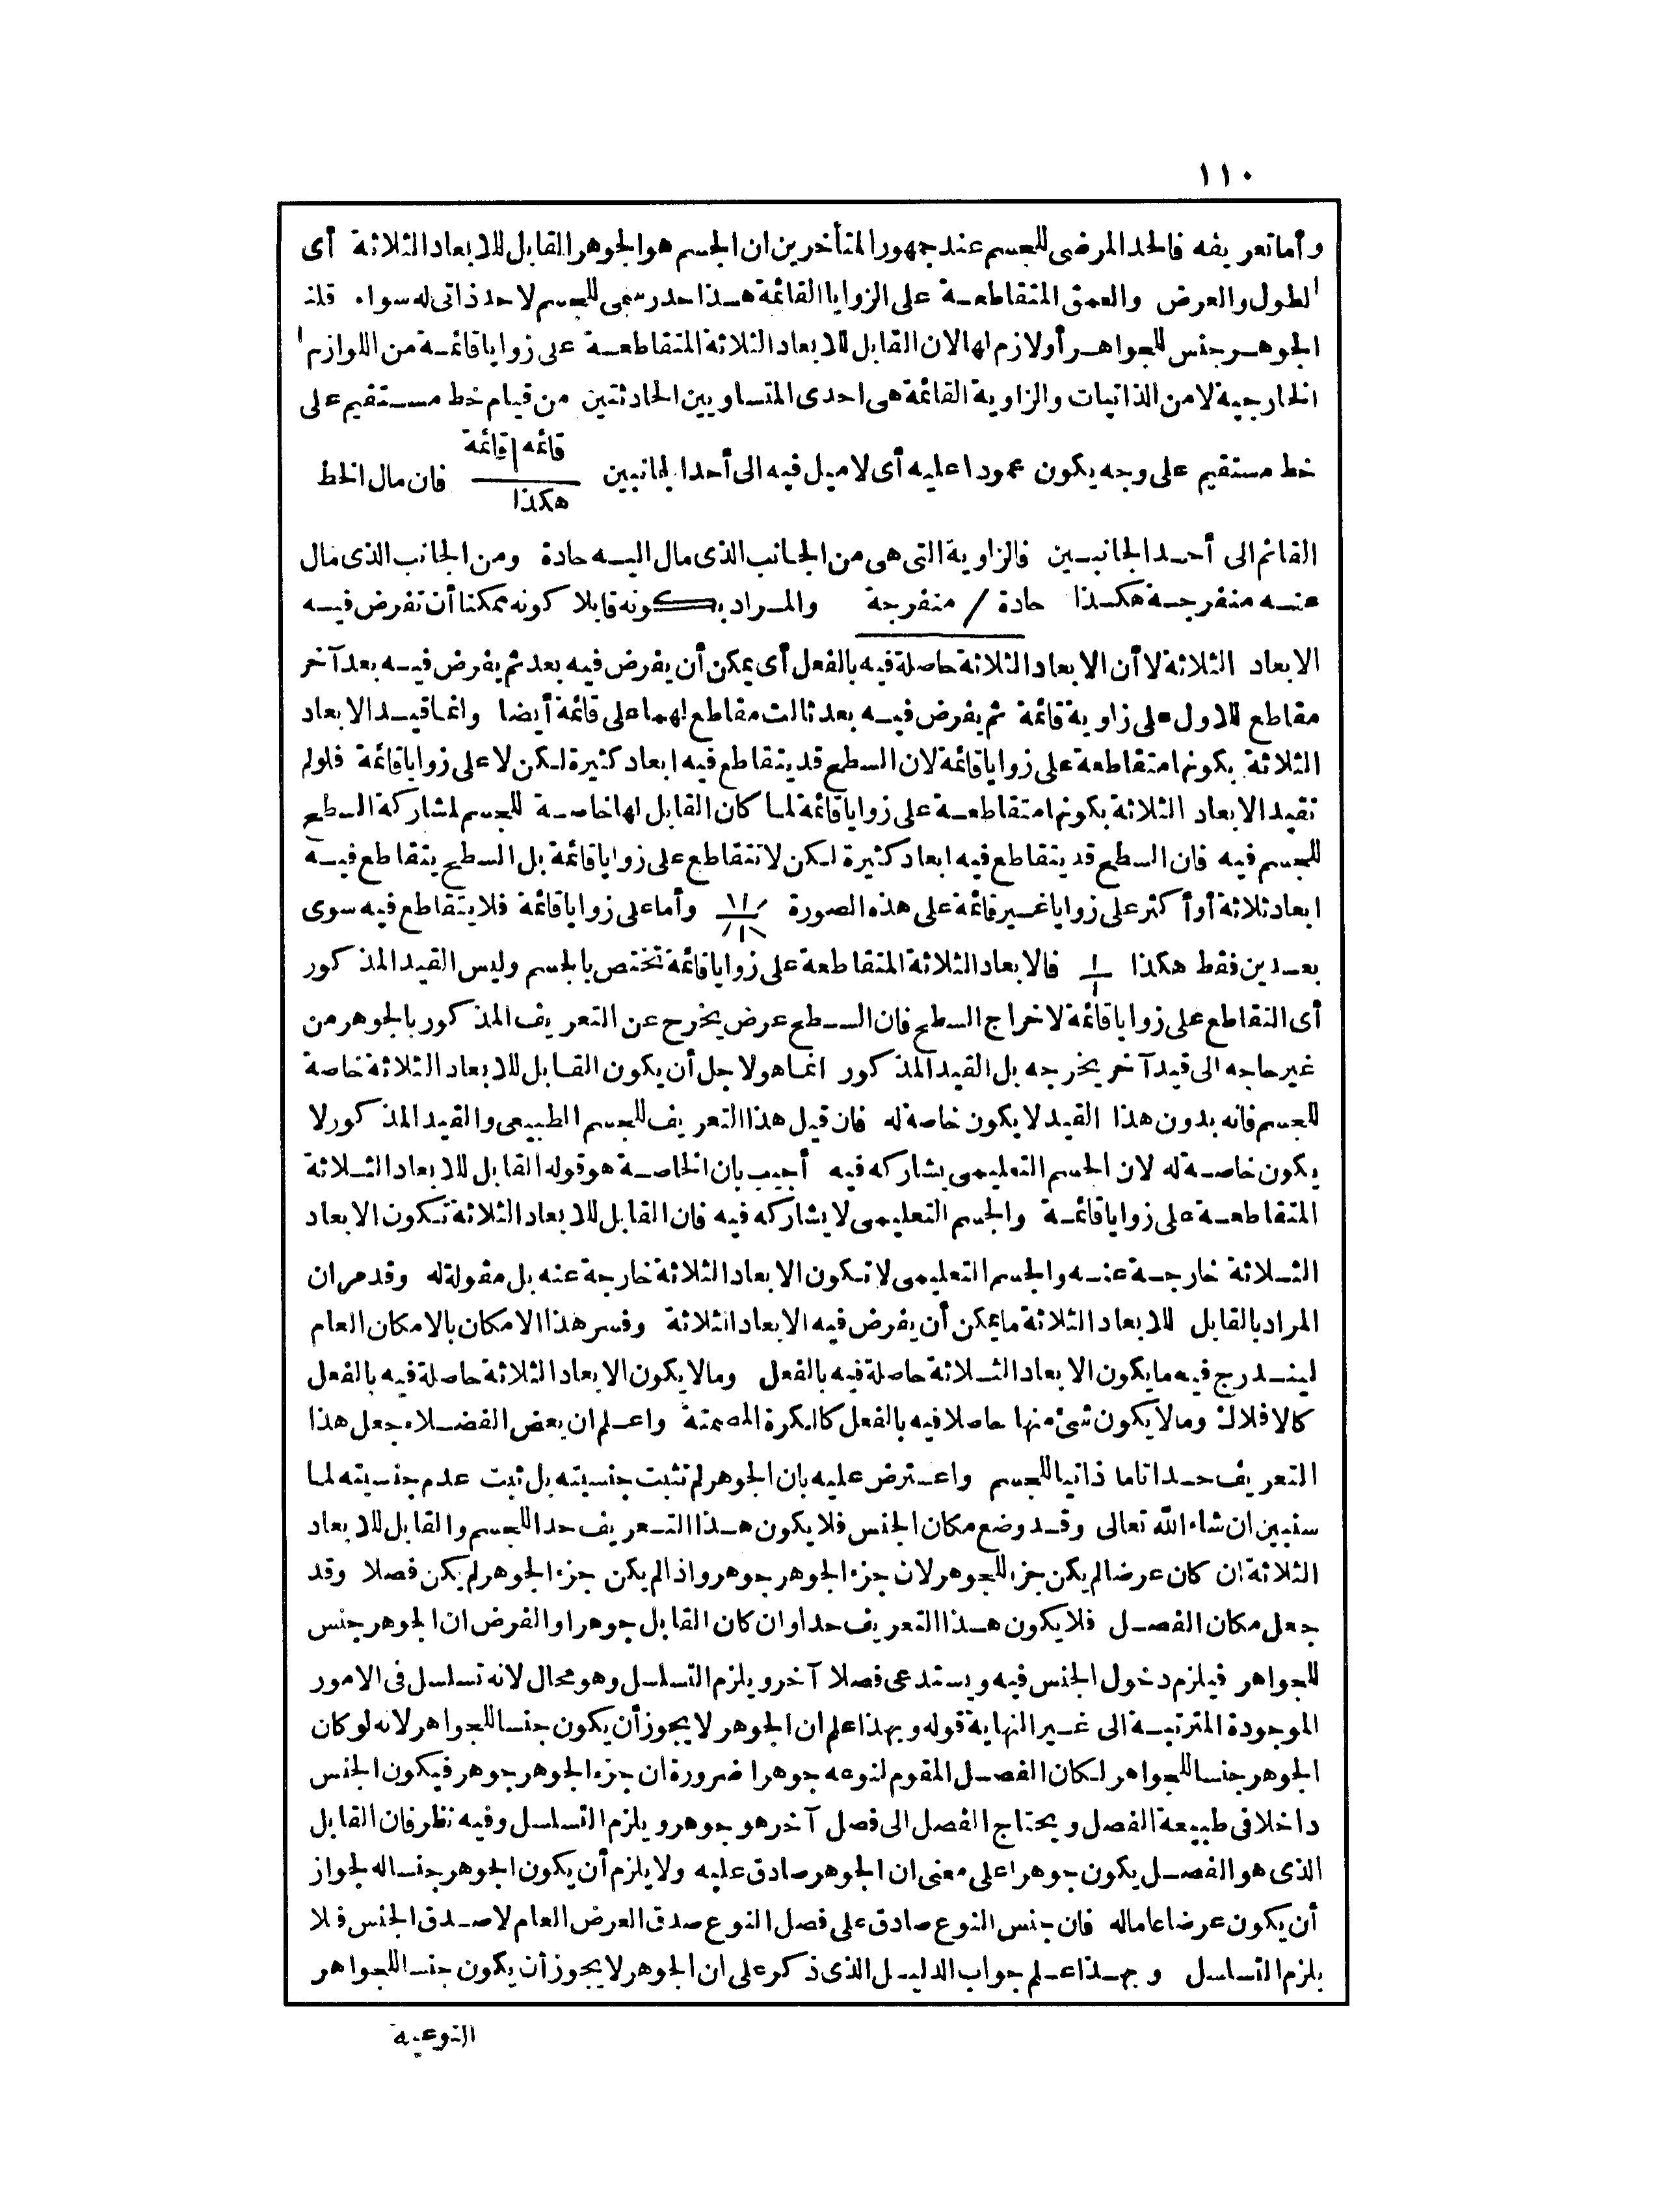 ١١٠
وأما تعريفه فالحد المرضى للجسم عند جمهور المتأخرين ان الجسم هو الجوهر القابل للابعاد الثلاثة أى
الطول والعرض والعمق المتقاطعة على الزوايا القائمة هذا حد رسمى للجسم لا حد ذاتى له سواء قلنا
الجوهر جنس للجواهر أو لازم لها لان القابل للابعاد الثلاثة المتقاطعة على زوايا قائمة من اللوازم
الخارجية لا من الذاتيات والزاوية القائمة هى احدى المتساويين الحادثتين من قيام خط مستقيم على
خط مستقيم على وجه يكون عمودا عليه أى لا ميل فيه الى أحد الجانبين قائمه | قائمة هكذا فان مال الخط
القائم الى أحد الجانبين فالزاوية التى هى من الجانب الذى مال اليه حادة ومن الجانب الذى مال
عنه منفرجة هكذا حادة / منفرجة والمراد بكونه قابلا كونه ممكنا أن تفرض فيه
الابعاد الثلاثة لا أن الابعاد الثلاثة حاصلة فيه بالفعل أى يمكن أن يفرض فيه بعد ثم يفرض فيه بعد آخر
مقاطع للاول على زاوية قائمة ثم يفرض فيه بعد ثالث مقاطع لهما على قائمة أيضا وانما قيد الابعاد
الثلاثة بكونها متقاطعة على زوايا قائمة لان السطح قد يتقاطع فيه ابعاد كثيرة لكن لا على زوايا قائمة فلو لم
نقيد الابعاد الثلاثة بكونها متقاطعة على زوايا قائمة لما كان القابل لها خاصة للجسم لمشاركة السطح
للجسم فيه فان السطح قد يتقاطع فيه ابعاد كثيرة لكن لا تتقاطع على زوايا قائمة بل السطح يتقاطع فيه
ابعاد ثلاثة أو أكثر على زوايا غير قائمة على هذه الصورة وأما على زوايا قائمة فلا يتقاطع فيه سوى
بعدين فقط هكذا فالابعاد الثلاثة المتقاطعة على زوايا قائمة تختص بالجسم وليس القيد المذكور
أى التقاطع على زوايا قائمة لاخراج السطح فان السطح عرض يخرج عن التعريف المذكور بالجوهر من
غير حاجه الى قيد آخر يخرجه بل القيد المذكور انما هو لاجل أن يكون القابل للابعاد الثلاثة خاصة
للجسم فانه بدون هذا القيد لا يكون خاصة له فان قيل هذا التعريف للجسم الطبيعى والقيد المذكور لا
يكون خاصة له لان الجسم التعليمى يشاركه فيه أجيب بان الخاصة هو قوله القابل للابعاد الثلاثة
المتقاطعة على زوايا قائمة والجسم التعليمى لا يشاركه فيه فان القابل للابعاد الثلاثة تكون الابعاد
الثلاثة خارجة عنه والجسم التعليمى لا تكون الابعاد الثلاثة خارجة عنه بل مقولة له وقد مر ان
المراد بالقابل للابعاد الثلاثة ما يمكن أن يفرض فيه الابعاد الثلاثة وفسر هذا الامكان بالامكان العام
ليندرج فيه ما يكون الابعاد الثلاثة حاصلة فيه بالفعل وما لا يكون الابعاد الثلاثة حاصلة فيه بالفعل
كالافلاك وما لا يكون شئ منها حاصلا فيه بالفعل كالكرة المصمتة واعلم ان بعض الفضلاء جعل هذا
التعريف حدا تاما ذاتيا للجسم واعترض عليه بان الجوهر لم تثبت جنسيته بل ثبت عدم جنسيته لما
سنبين ان شاء الله تعالى وقد وضع مكان الجنس فلا يكون هذا التعريف حدا للجسم والقابل للابعاد
الثلاثة ان كان عرضا لم يكن جزأ للجوهر لان جزء الجوهر جوهر واذا لم يكن جزء الجوهر لم يكن فصلا وقد
جعل مكان الفصل فلا يكون هذا التعريف حدا وان كان القابل جوهرا والفرض ان الجوهر جنس
للجواهر فيلزم دخول الجنس فيه ويستدعى فصلا آخر ويلزم التسلسل وهو محال لانه تسلسل فى الامور
الموجودة المترتبة الى غير النهاية قوله وبهذا علم ان الجوهر لا يجوز أن يكون جنسا للجواهر لانه لو كان
الجوهر جنسا للجواهر لكان الفصل المقوم لنوعه جوهرا ضرورة ان جزء الجوهر جوهر فيكون الجنس
داخلا فى طبيعة الفصل ويحتاج الفصل الى فصل آخر هو جوهر ويلزم التسلسل وفيه نظر فان القابل
الذى هو الفصل يكون جوهرا على معنى ان الجوهر صادق عليه ولا يلزم أن يكون الجوهر جنسا له لجواز
أن يكون عرضا عاما له فان جنس النوع صادق على فصل النوع صدق العرض العام لا صدق الجنس فلا
يلزم التسلسل وبهذا علم جواب الدليل الذى ذكر على ان الجوهر لا يجوز أن يكون جنسا للجواهر
النوعية